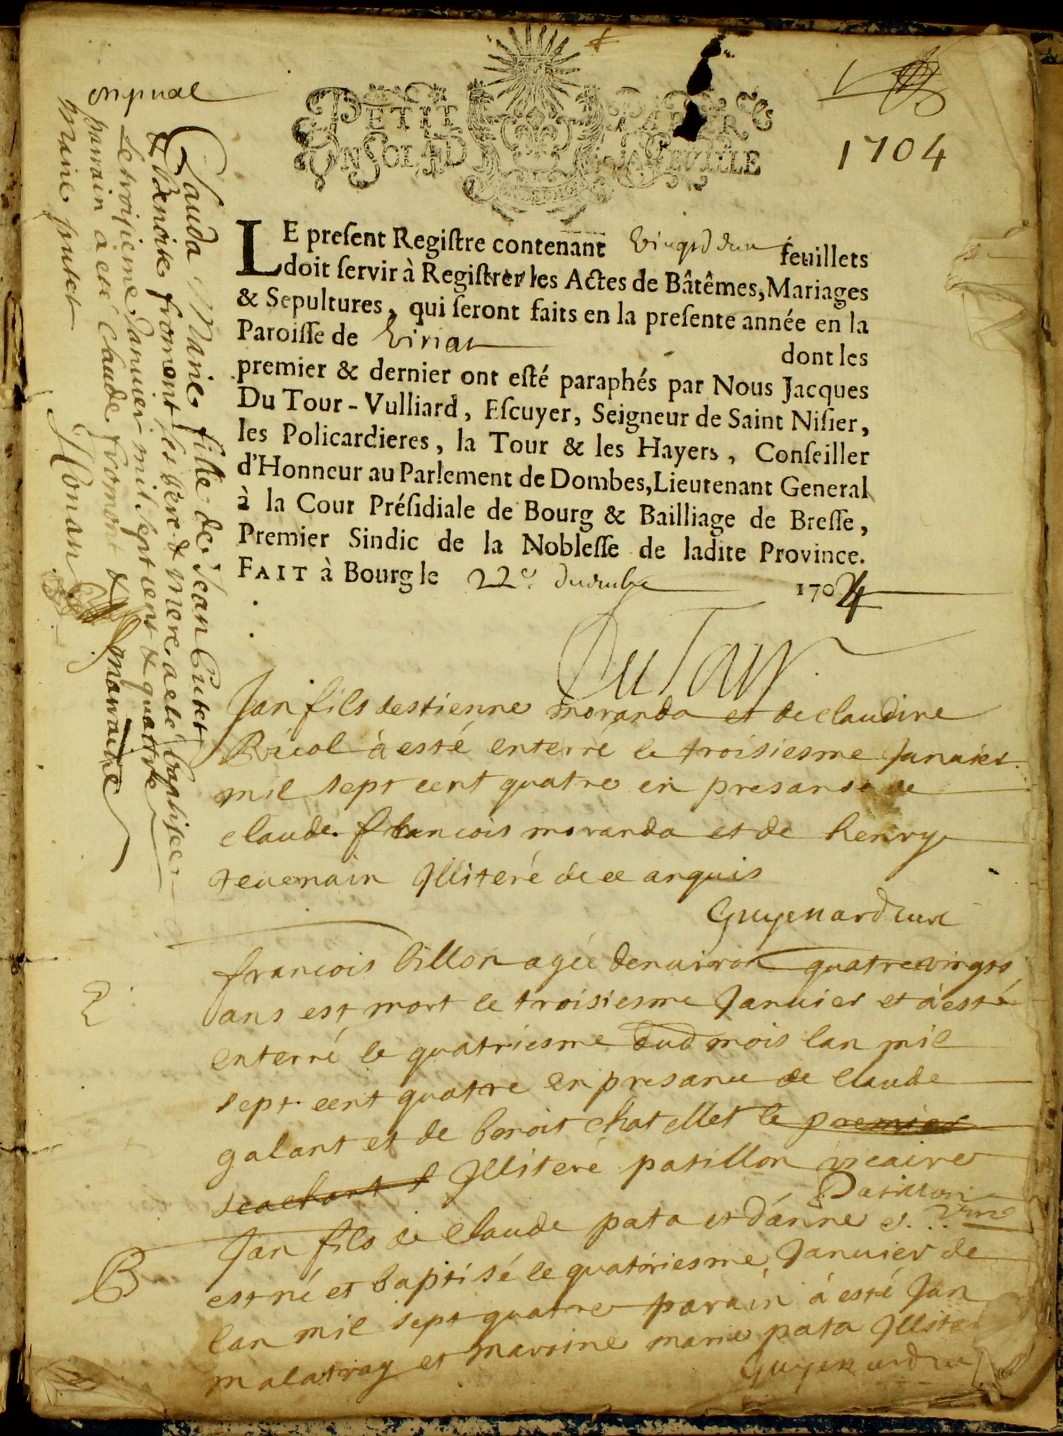 PETIT PAPIER
UN SOL LAD
1704
LE present Registre contenant vingt deux feuillets
doit servir à Registrer les Actes de Bâtêmes, Mariages
& Sepultures, qui seront faits en la presente année en la
Paroisse de Viriat dont les
premier & dernier ont esté paraphés par Nous Jacques
Du Tour-Vulliard, Escuyer, Seigneur de Saint Nisier,
les Policardieres, la Tour & les Hayers, Conseiller
d'Honneur au Parlement de Dombes, Lieutenant General
à la Cour Présidiale de Bourg & Bailliage de Bresse,
Premier Sindic de la Noblesse de ladite Province.
FAIT à Bourg le 22e 1704
DuTour
Jan fils destienne moranda et de claudine
à esté enterré le troisiesme Januier
mil sept cent quatre en presance de
claude francois moranda et de henry
teuenain Illiteré de ce anquis
Guyenard curé
francois billon agée denuiron quatrevingts
ans est mort le troisiesme Januier et à esté
enterré le quatriesme dud mois lan mil
sept cent quatre en presance de claude
galant et de benoit chatellet le premier
scachant Illiteré patillon vicaire
Patillon vic
Jan fils de Claude pata et d'anne
est né et baptisé le quatriesme Januier de
lan mil sept quatre parain à esté Jan
malatray et marraine marie pata
Guyenard
B
Clauda Marie fille de Jean Cutet
& Benoite fromont ses pere & mere a eté baptisee
Le troisieme Januier mil sept cent & quattre
parrain a eté claude fromont & marraine
Marie putet